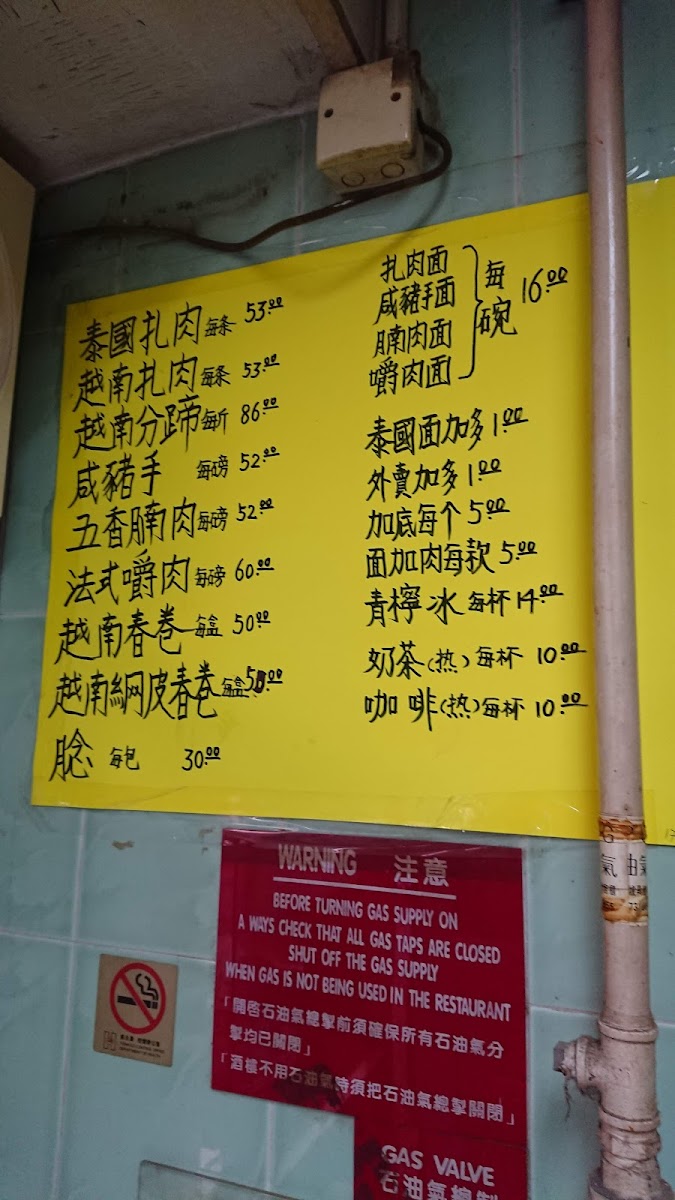 泰國扎肉 每条 53.00
越南扎肉 每条 53.00
越南分蹄 每斤 86.00
咸豬手 每磅 52.00
五香腩肉 每磅 52.00
法式嚼肉 每磅 60.00
越南春卷 每盒 50.00
越南網皮春卷 每盒 50.00
腍 每包 30.00
扎肉面
咸豬手面
腩肉面
嚼肉面
每碗 16.00
泰國面加多 1.00
外賣加多 1.00
加底每个 5.00
面加肉每款 5.00
青檸冰 每杯 14.00
奶茶(热) 每杯 10.00
咖啡(热) 每杯 10.00
WARNING 注意
BEFORE TURNING GAS SUPPLY ON
A WAYS CHECK THAT ALL GAS TAPS ARE CLOSED
SHUT OFF THE GAS SUPPLY
WHEN GAS IS NOT BEING USED IN THE RESTAURANT
「開啓石油氣總掣前須確保所有石油氣分
掣均已關閉」
「酒樓不用石油氣時須把石油氣總掣關閉」
GAS VALVE
石油氣總掣